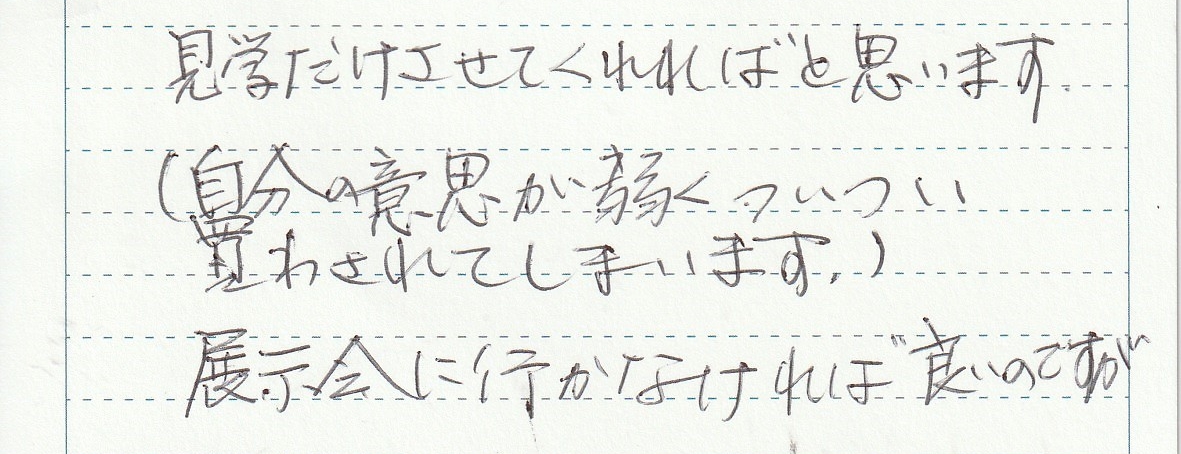 見学だけさせてくれればと思います.
(自分の意思が弱くついつい
買わされてしまいます.)
展示会に行かなければ良いのですが